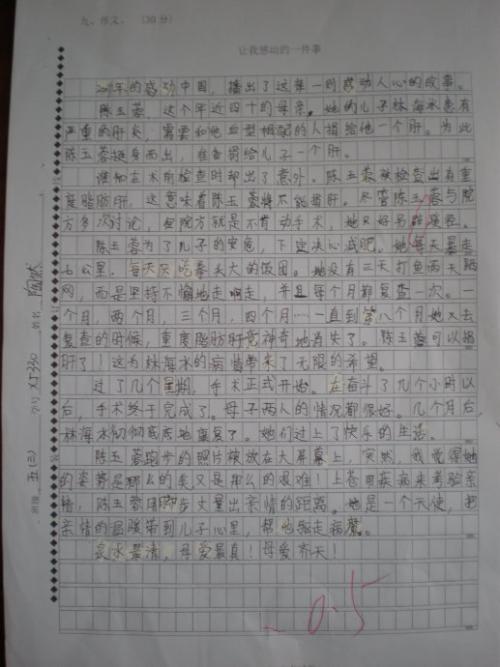 九、作文。（30分）
让我感动的一件事
年的感动中国，播出了这样一则感动人心的故事。
陈玉蓉，这个年近四十的母亲。她的儿子林海水患有
严重的肝炎，需要和他血型相配的人捐给他一个肝。为此
陈玉蓉挺身而出，准备捐给儿子一个肝。
谁知在术前检查时却出了意外。陈玉蓉被检查出有重
度脂肪肝。这意味着陈玉蓉将不能捐肝。尽管陈玉蓉与院
方多次讨论，但院方就是不肯动手术，她只好另
陈玉蓉为了儿子的安危，下定决心减肥。她每天暴走
七公里，每天只吃拳头大的饭团。她没有三天打鱼两天晒
网，而是坚持不懈地走啊走，并且每个月都复查一次。一
个月，两个月，三个月，四个月……一直到第八个月她又去
复查的时候，重度脂肪肝竟神奇地消失了。陈玉蓉可以捐
肝了！这为林海水的病情带来了无限的希望。
过了几个星期，手术正式开始。在奋斗了几个小时以
后，手术终于完成了。母子两人的情况都很好。几个月后
林海水彻彻底底地康复了。她们过上了快乐的生活。
陈玉蓉跑步的照片被放在大屏幕上，突然，我觉得她
的姿势是那么的美又是那么的艰难！上苍用疾病来考验亲
情，陈玉蓉用脚步丈量出亲情的距离。她是一个天使，把
亲情的温暖带到儿子心里，帮他驱走病魔。
泉水最清，母爱最真！母爱齐天！
-0.5
班级 五(三) 学号 姓名